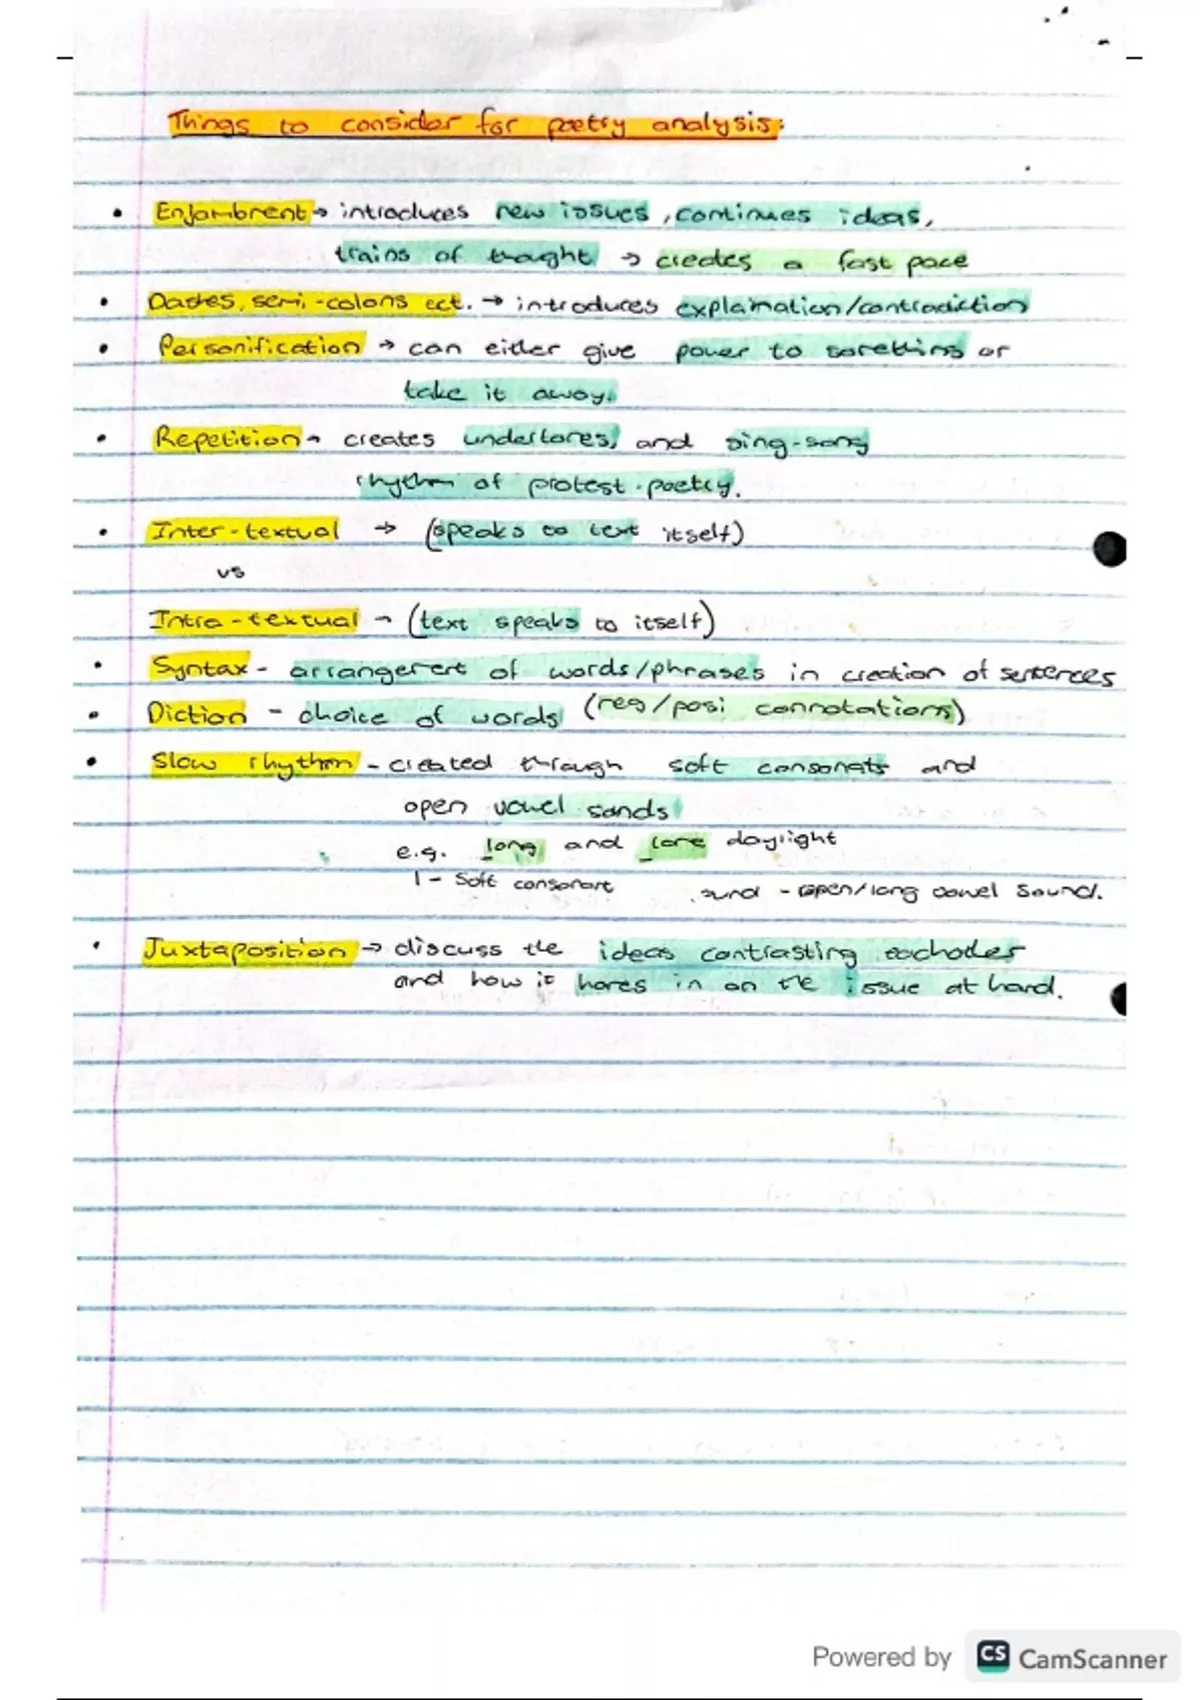 Things to consider for poetry analysis:
• Enjambrent → introduces new issues, continues ideas,
trains of thought → creates a fast pace
• Dashes, semi-colons ect. → introduces explaination/contradiction
• Personification → can either give power to something or
take it away.
• Repetition → creates undertones, and sing-song
rhythm of protest poetry.
• Inter-textual → (speaks to text itself)
vs
Intra-textual → (text speaks to itself)
• Syntax - arrangement of words/phrases in creation of sentences
• Diction - choice of words (neg/posi connotations)
• Slow rhythm - created through soft consonats and
open vowel sands
e.g. long and lone daylight
l - soft consonant sund - open/long vowel sound.
• Juxtaposition → discuss the ideas contrasting eachother
and how it hones in on the issue at hand.
Powered by CS CamScanner